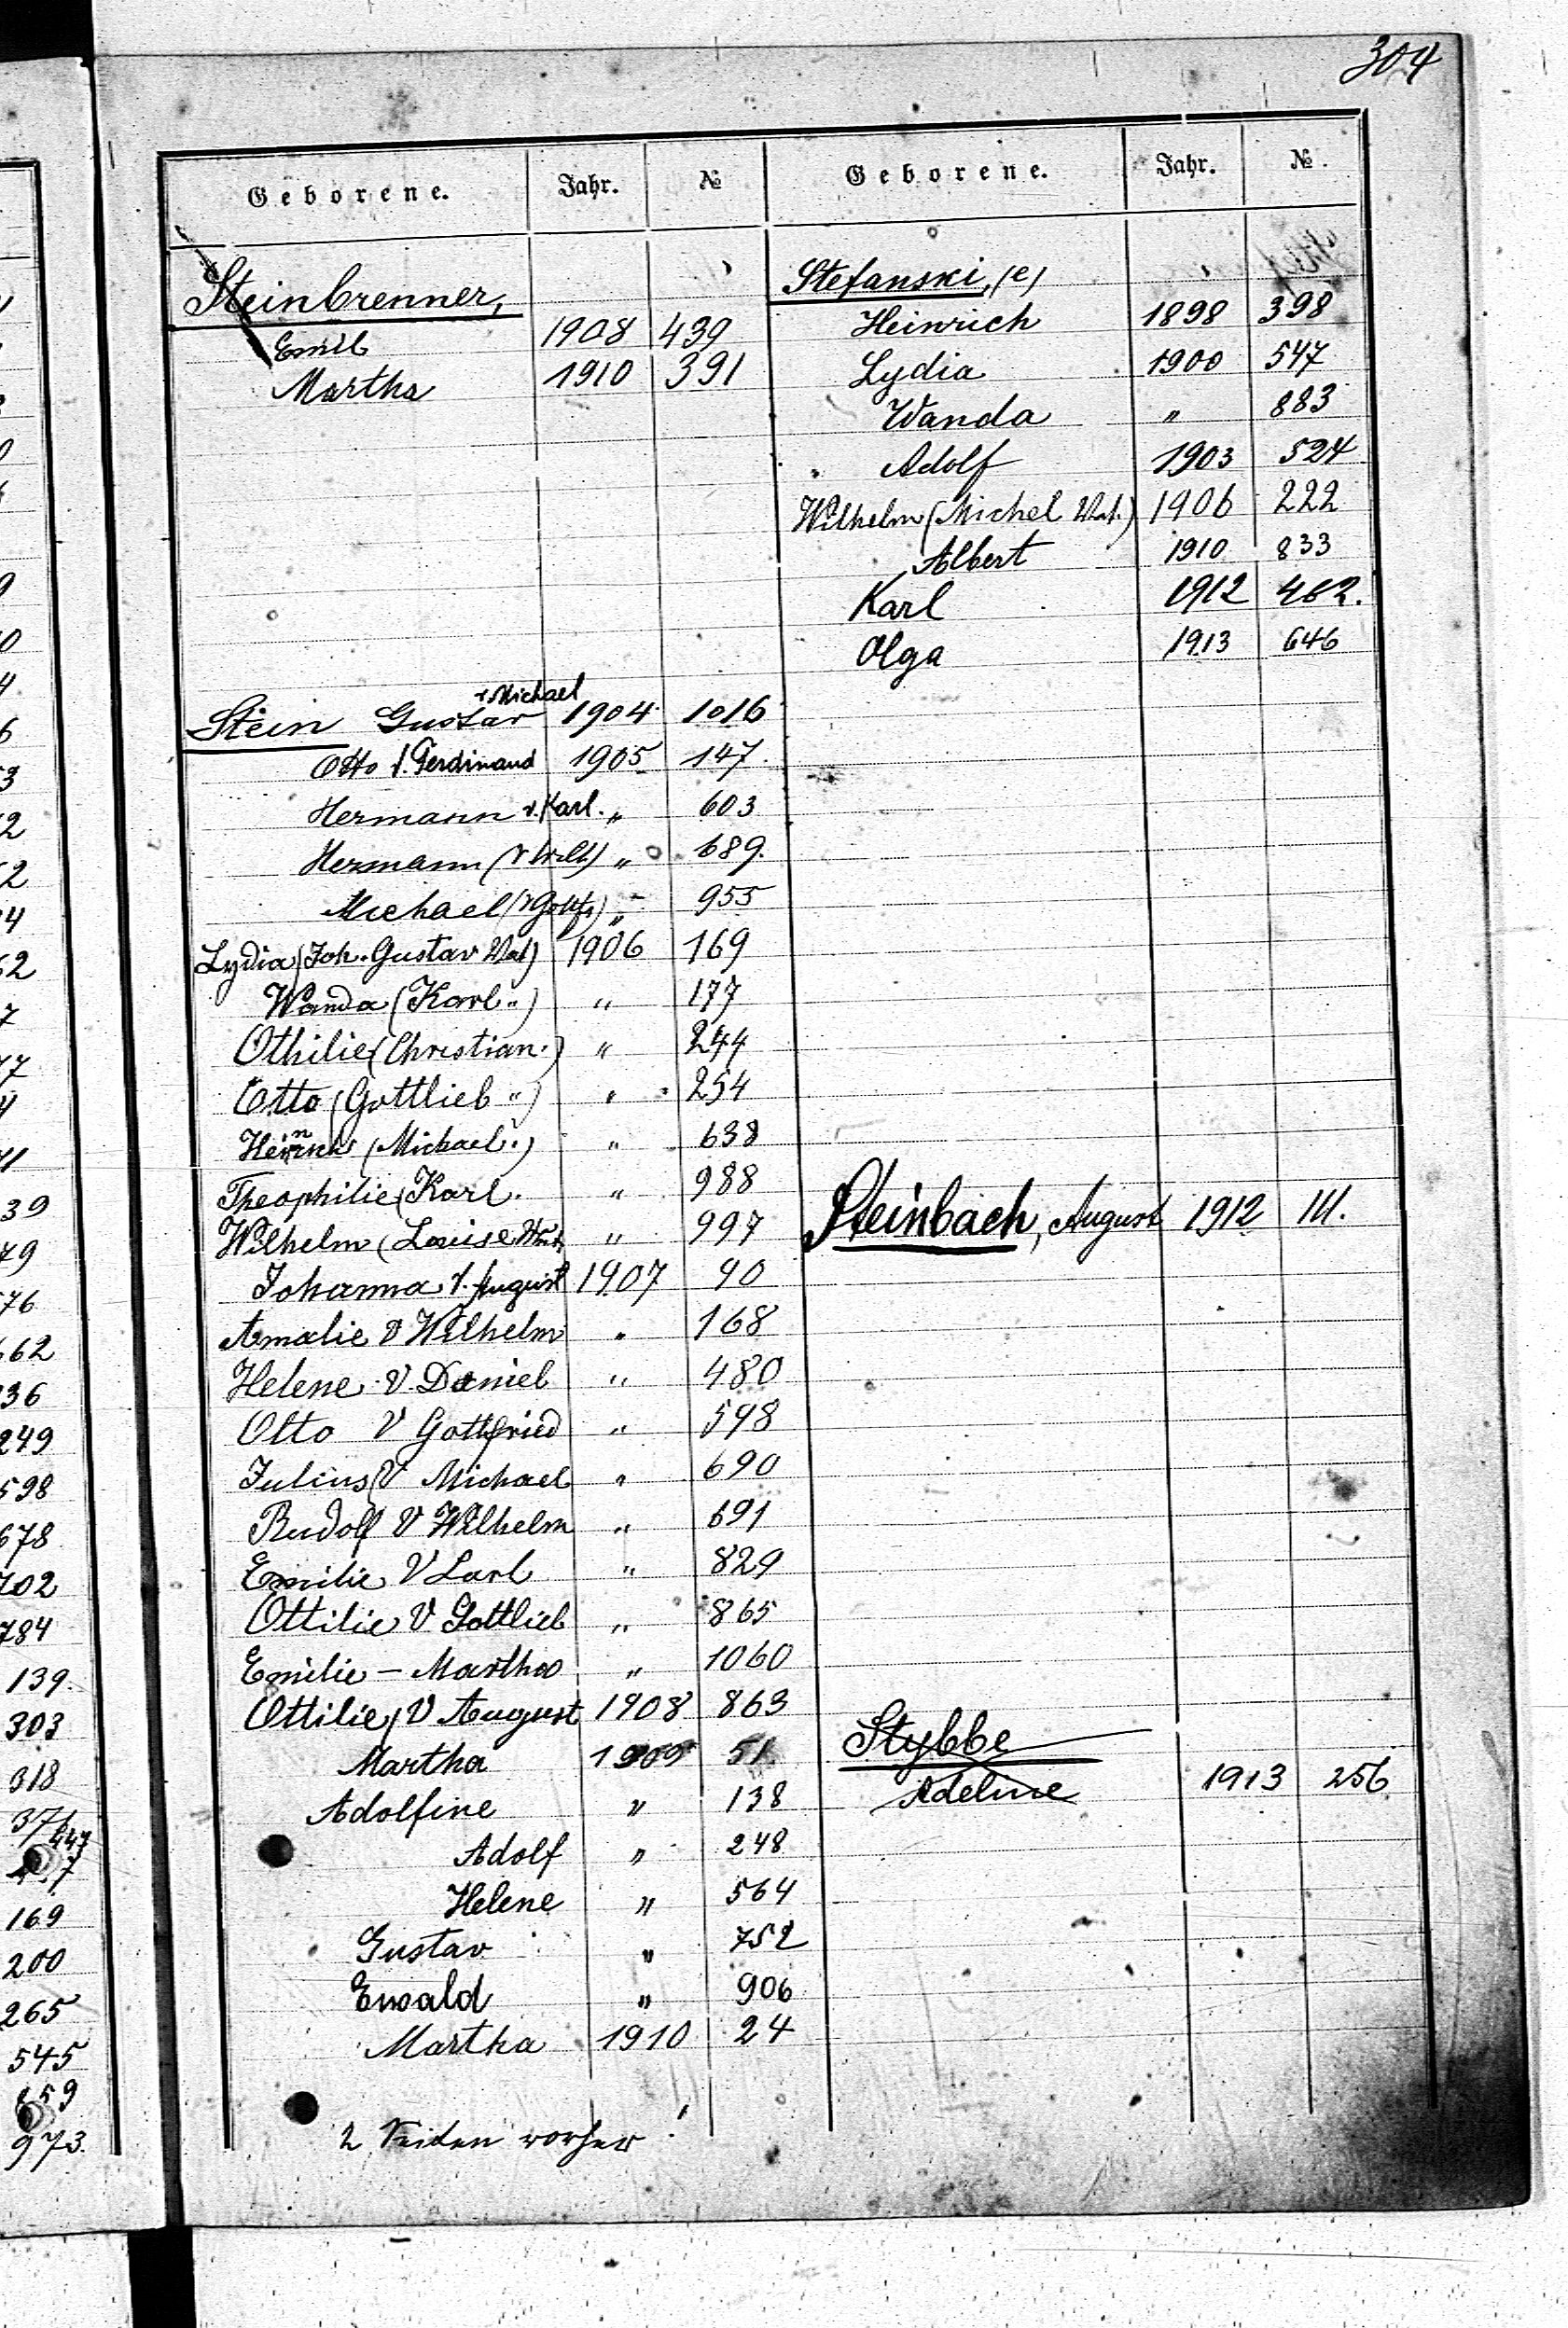 304
Geborene. Jahr. №
Steinbrenner,
Emil 1908 439
Martha 1910 391
Stein Gustav v Michael 1904 1016
Otto v. Ferdinand 1905 147.
Hermann v. Karl. „ 603
Hermann (v Wilh) „ 689.
Michael (v Gottfr) „ 955
Lydia (Joh. Gustav Vat) 1906 169
Wanda (Karl „) „ 177
Othilie (Christian „) „ 244
Otto (Gottlieb „) „ 254
(Michael „) „ 638
Theophilie (Karl. „ 988
Wilhelm (Louise „ 997
Johanna v. August 1907 90
Amalie V Wilhelm „ 168
Helene V. Daniel „ 480
Otto V Gottfried „ 598
Julius V Michael „ 690
Rudolf V Wilhelm „ 691
Emilie V Karl „ 829
Ottilie V Gottlieb „ 865
Emilie – Martha „ 1060
Ottilie (V August 1908 863
Martha 1909 51
Adolfine „ 138
Adolf „ 248
Helene „ 564
Gustav „ 752
Ewald „ 906
Martha 1910 24
2 Seiten vorher
Geborene. Jahr. №.
Stefanski, (e)
Heinrich 1898 398
Lydia 1900 547
Wanda „ 883
Adolf 1903 524
Wilhelm (Michel Vat.) 1906 222
Albert 1910 833
Karl 1912 462.
Olga 1913 646
Steinbach, August 1912 111.
Stybbe
Adeline 1913 256
39
79
76
662
36
249
598
678
702
784
139.
303
318
376
447
169
200
265
545
859
973.